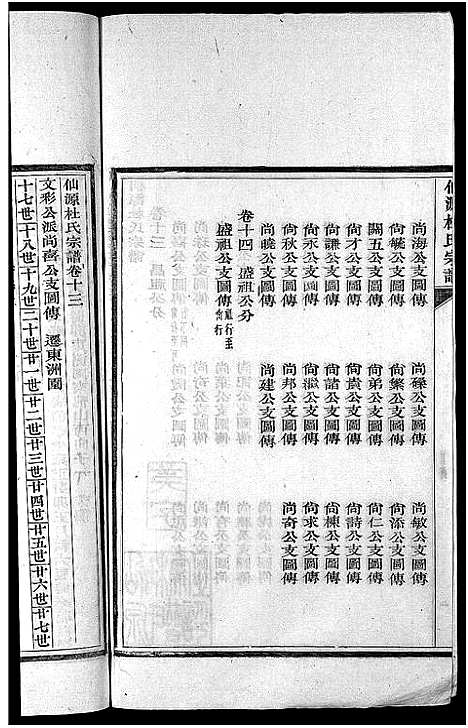 仙源杜氏宗譜
尚海公支圖傳 尚孫公支圖傳 尚敏公支圖傳
尚毓公支圖傳 尚槃公支圖傳 尚添公支圖傳
關五公支圖傳 尚弟公支圖傳 尚仁公支圖傳
尚才公支圖傳 尚袁公支圖傳 尚詩公支圖傳
尚謙公支圖傳 尚諮公支圖傳 尚棟公支圖傳
尚永公支圖傳 尚滋公支圖傳 尚求公支圖傳
尚秋公支圖傳 尚邦公支圖傳 尚奇公支圖傳
尚曉公支圖傳 尚建公支圖傳
卷十四 盛祖公分
盛祖公支圖傳 福行至尚行
仙源杜氏宗譜卷十三
文彩公派尚斋公支圖傳 遷東洲園
十七世十八世十九世二十世廿一世廿二世廿三世廿四世廿五世廿六世廿七世